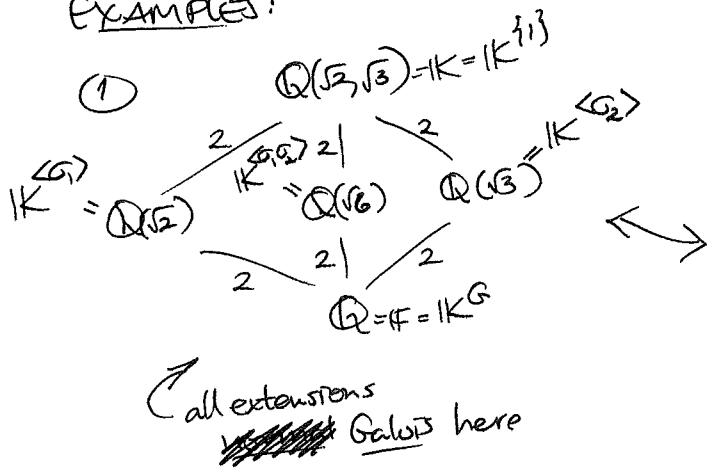 EXAMPLES:
①
Q(√2,√3)=K=K^{1}
2 2 2
K^<σ₁> = Q(√2)
K^<σ₁σ₂> = Q(√6)
Q(√3) = K^<σ₂>
2 2 2
Q=F=K^G
all extensions
Galois here